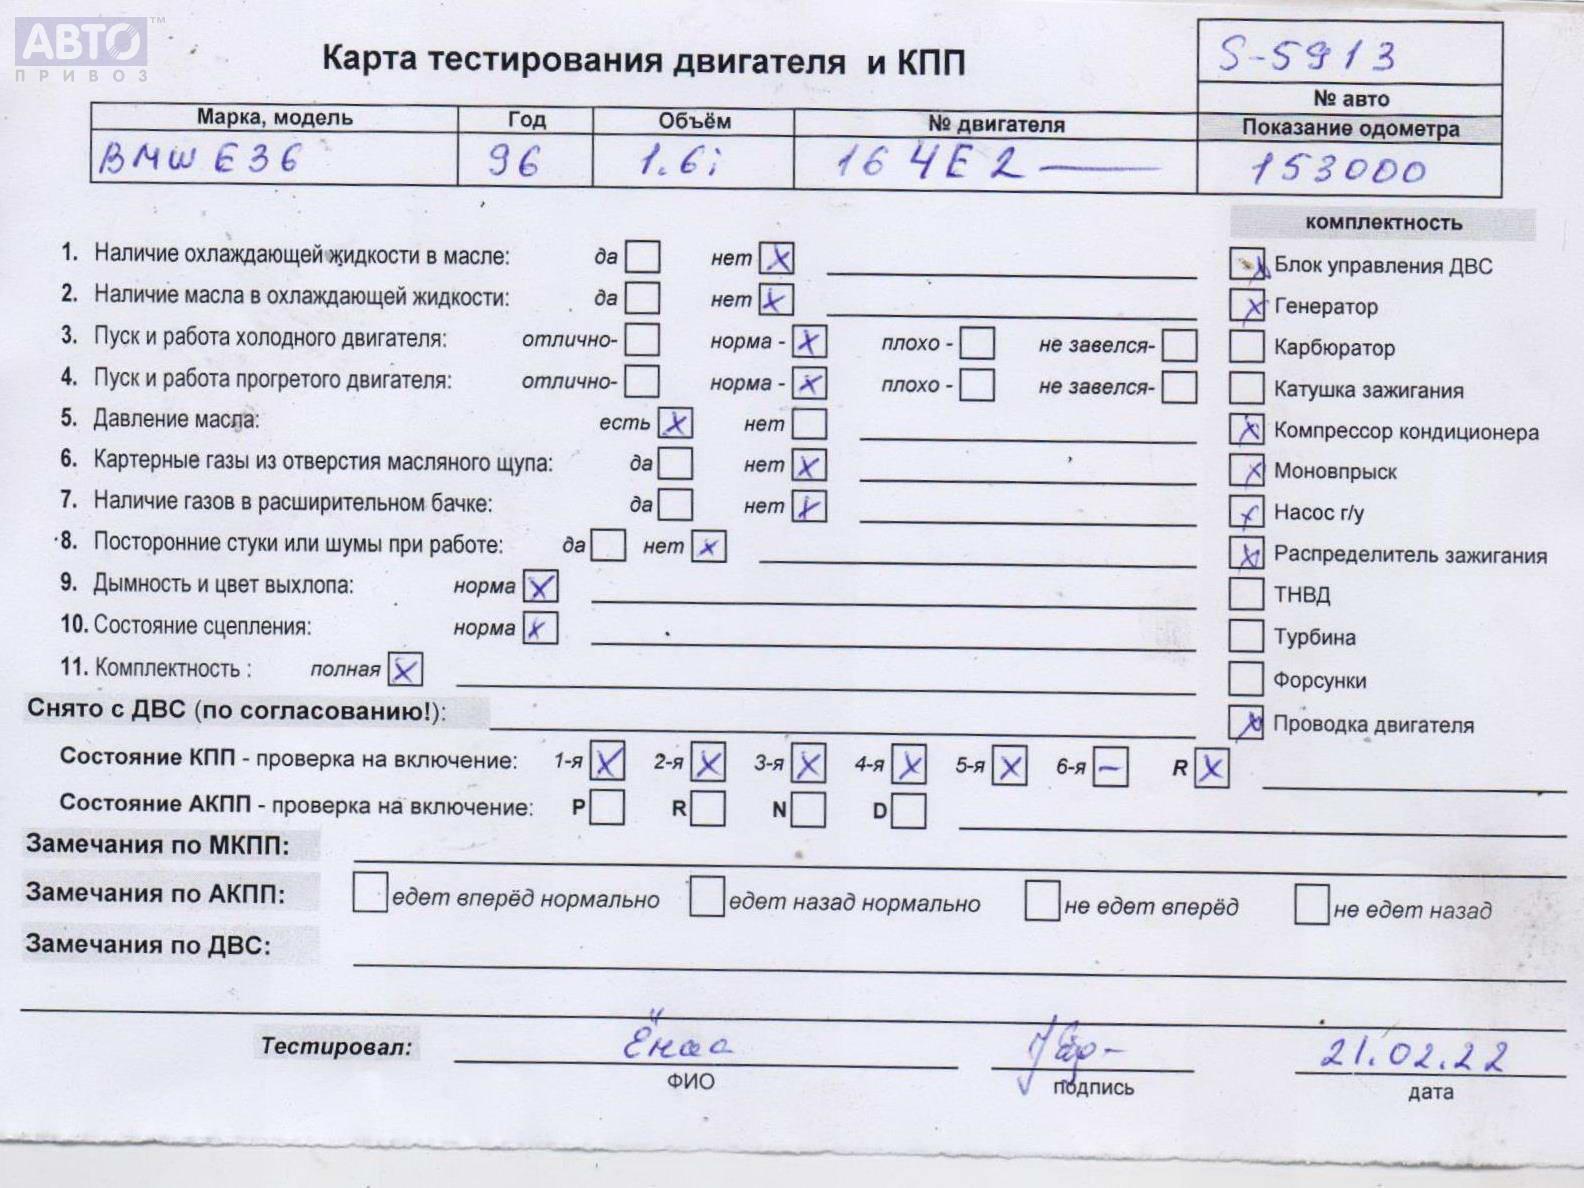 АВТО™
ПРИВОЗ
Карта тестирования двигателя и КПП
S-5913
№ авто
Марка, модель Год Объём № двигателя Показание одометра
BMW E36 96 1.6i 164E2 — 153000
комплектность
1. Наличие охлаждающей жидкости в масле: да нет X
Блок управления ДВС
2. Наличие масла в охлаждающей жидкости: да нет X
Генератор
3. Пуск и работа холодного двигателя: отлично- норма - X плохо - не завелся-
Карбюратор
4. Пуск и работа прогретого двигателя: отлично- норма - X плохо - не завелся-
Катушка зажигания
5. Давление масла: есть X нет
Компрессор кондиционера
6. Картерные газы из отверстия масляного щупа: да нет X
Моновпрыск
7. Наличие газов в расширительном бачке: да нет X
Насос г/у
8. Посторонние стуки или шумы при работе: да нет X
Распределитель зажигания
9. Дымность и цвет выхлопа: норма X
ТНВД
10. Состояние сцепления: норма X
Турбина
11. Комплектность : полная X
Форсунки
Снято с ДВС (по согласованию!):
Проводка двигателя
Состояние КПП - проверка на включение: 1-я X 2-я X 3-я X 4-я X 5-я X 6-я — R X
Состояние АКПП - проверка на включение: P R N D
Замечания по МКПП:
Замечания по АКПП: едет вперёд нормально едет назад нормально не едет вперёд не едет назад
Замечания по ДВС:
Тестировал: 21.02.22
ФИО подпись дата